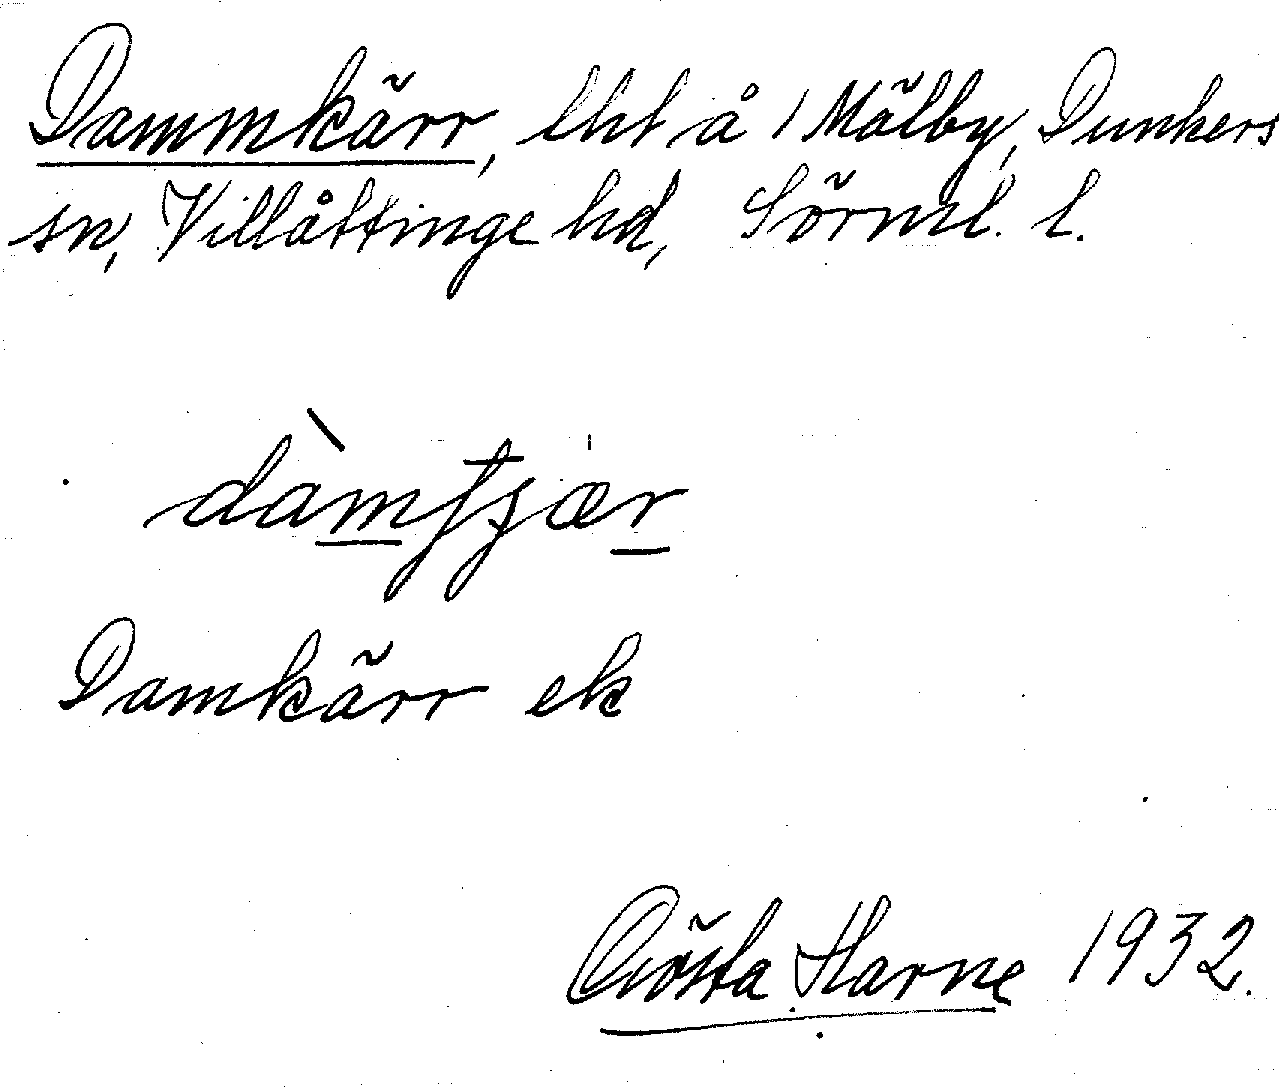 Dammkärr, lht å 1 Mälby, Dunkers
sn, Villåttinge hd, Sörml. l.
dàmtʃær
Damkärr ek
Gösta Harne 1932.